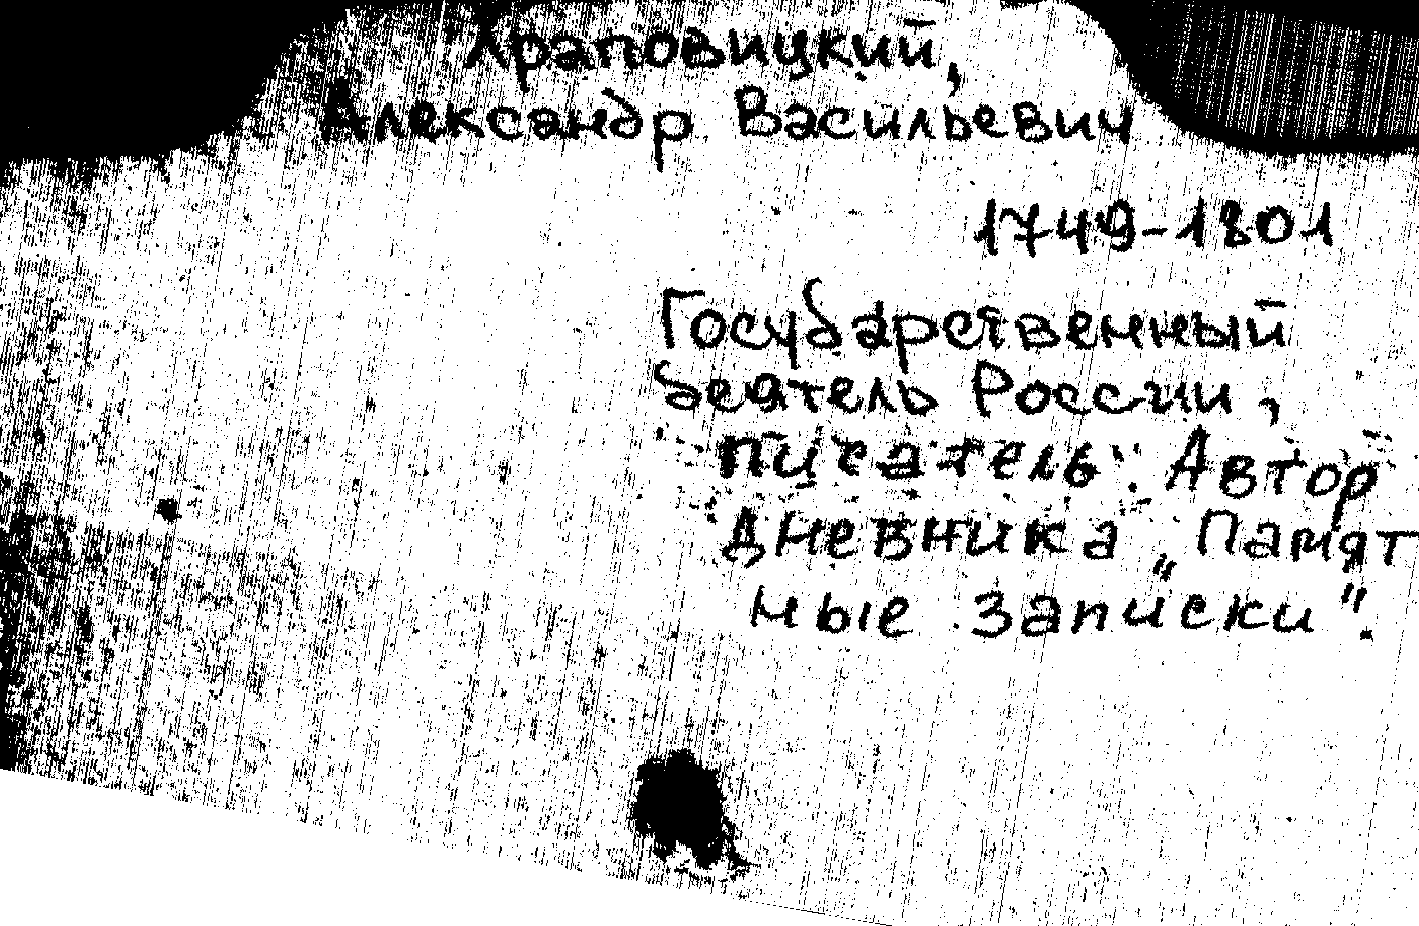 Храповицкий,
Александр Васильевич
1749-1801
Государственный
деятель России,
писатель. Автор
дневника „Памят
ные записки".